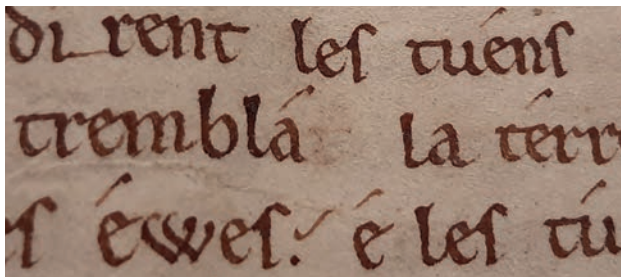 di rent les tuéns
tremblá la térr
es éwes. é les tú